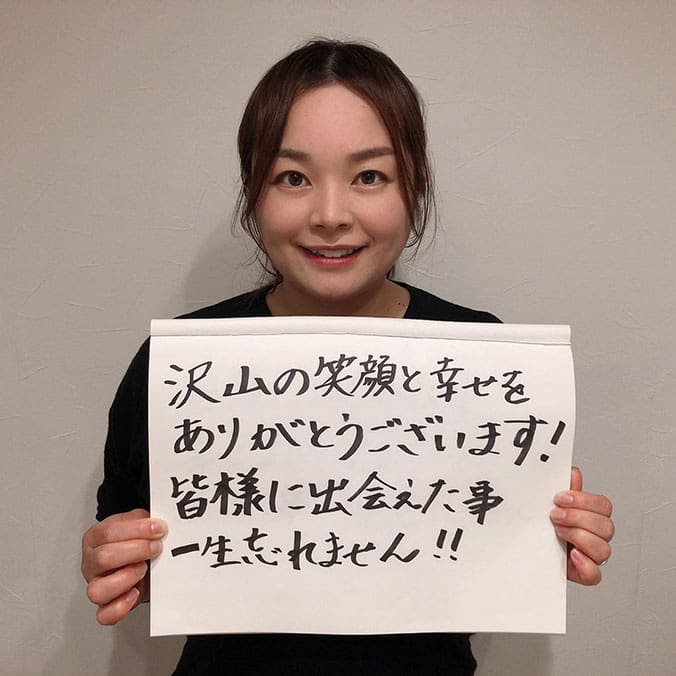 沢山の笑顔と幸せを
ありがとうございます!
皆様に出会えた事
一生忘れません!!